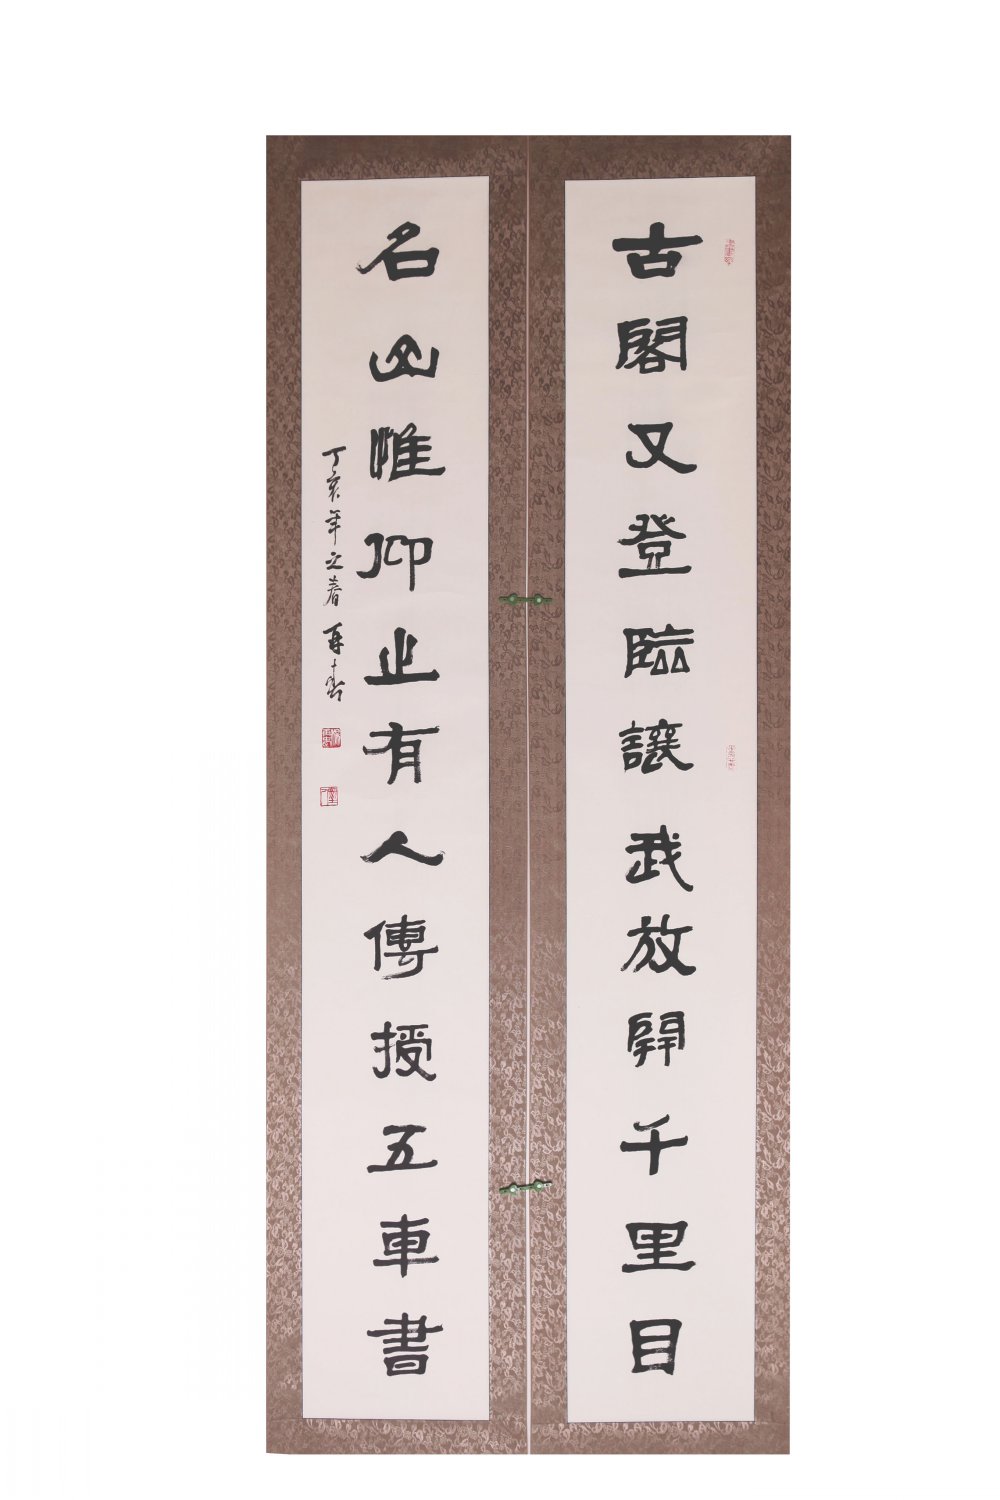 古閣又登臨讓我放開千里目
名山惟仰止有人傳授五車書
丁亥年之春